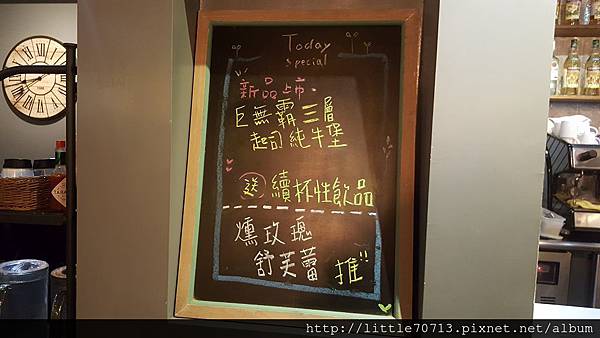 Today
special
新品上市.
巨無霸三層
起司純牛堡
送 續杯性飲品
燻玫瑰
舒芙蕾 推!!
http://little70713.pixnet.net/album